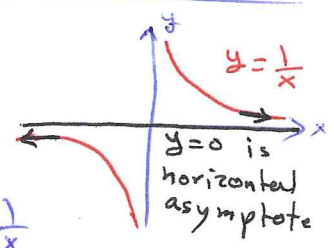 y
y = 1/x
x
y=0 is
horizontal
asymptote
1/x